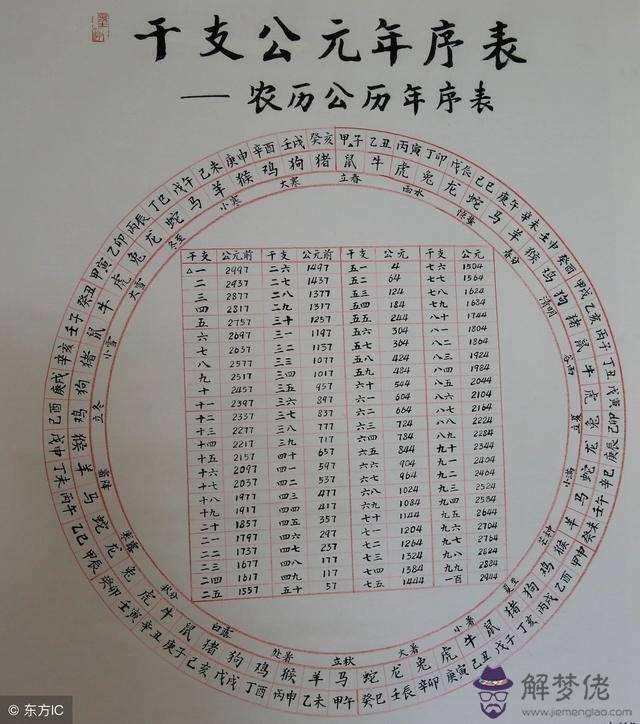 干支公元年序表
——农历公历年序表
甲子 乙丑 丙寅 丁卯 戊辰 己巳 庚午 辛未 壬申 癸酉 甲戌 乙亥 丙子 丁丑 戊寅 己卯 庚辰 辛巳 壬午 癸未 甲申 乙酉 丙戌 丁亥 戊子 己丑 庚寅 辛卯 壬辰 癸巳 甲午 乙未 丙申 丁酉 戊戌 己亥 庚子 辛丑 壬寅 癸卯 甲辰 乙巳 丙午 丁未 戊申 己酉 庚戌 辛亥 壬子 癸丑 甲寅 乙卯 丙辰 丁巳 戊午 己未 庚申 辛酉 壬戌 癸亥
鼠 牛 虎 兔 龙 蛇 马 羊 猴 鸡 狗 猪 鼠 牛 虎 兔 龙 蛇 马 羊 猴 鸡 狗 猪 鼠 牛 虎 兔 龙 蛇 马 羊 猴 鸡 狗 猪 鼠 牛 虎 兔 龙 蛇 马 羊 猴 鸡 狗 猪 鼠 牛 虎 兔 龙 蛇 马 羊 猴 鸡 狗 猪
立春 雨水 惊蛰 春分 清明 谷雨 立夏 小满 芒种 夏至 小暑 大暑 立秋 处暑 白露 秋分 寒露 霜降 立冬 小雪 大雪 冬至 小寒 大寒
干支 公元前 干支 公元前 干支 公元 干支 公元
△一 2997 二六 1497 五一 4 七六 1504
二 2937 二七 1437 五二 64 七七 1564
三 2877 二八 1377 五三 124 七八 1624
四 2817 二九 1317 五四 184 七九 1684
五 2757 三十 1257 五五 244 八十 1744
六 2697 三一 1197 五六 304 八一 1804
七 2637 三二 1137 五七 364 八二 1864
八 2577 三三 1077 五八 424 八三 1924
九 2517 三四 1017 五九 484 八四 1984
十 2457 三五 957 六十 544 八五 2044
十一 2397 三六 897 六一 604 八六 2104
十二 2337 三七 837 六二 664 八七 2164
十三 2277 三八 777 六三 724 八八 2224
十四 2217 三九 717 六四 784 八九 2284
十五 2157 四十 657 六五 844 九十 2344
十六 2097 四一 597 六六 904 九一 2404
十七 2037 四二 537 六七 964 九二 2464
十八 1977 四三 477 六八 1024 九三 2524
十九 1917 四四 417 六九 1084 九四 2584
二十 1857 四五 357 七十 1144 九五 2644
二一 1797 四六 297 七一 1204 九六 2704
二二 1737 四七 237 七二 1264 九七 2764
二三 1677 四八 177 七三 1324 九八 2824
二四 1617 四九 117 七四 1384 九九 2884
二五 1557 五十 57 七五 1444 一百 2944
解梦佬
www.jiemenglao.com
东方IC